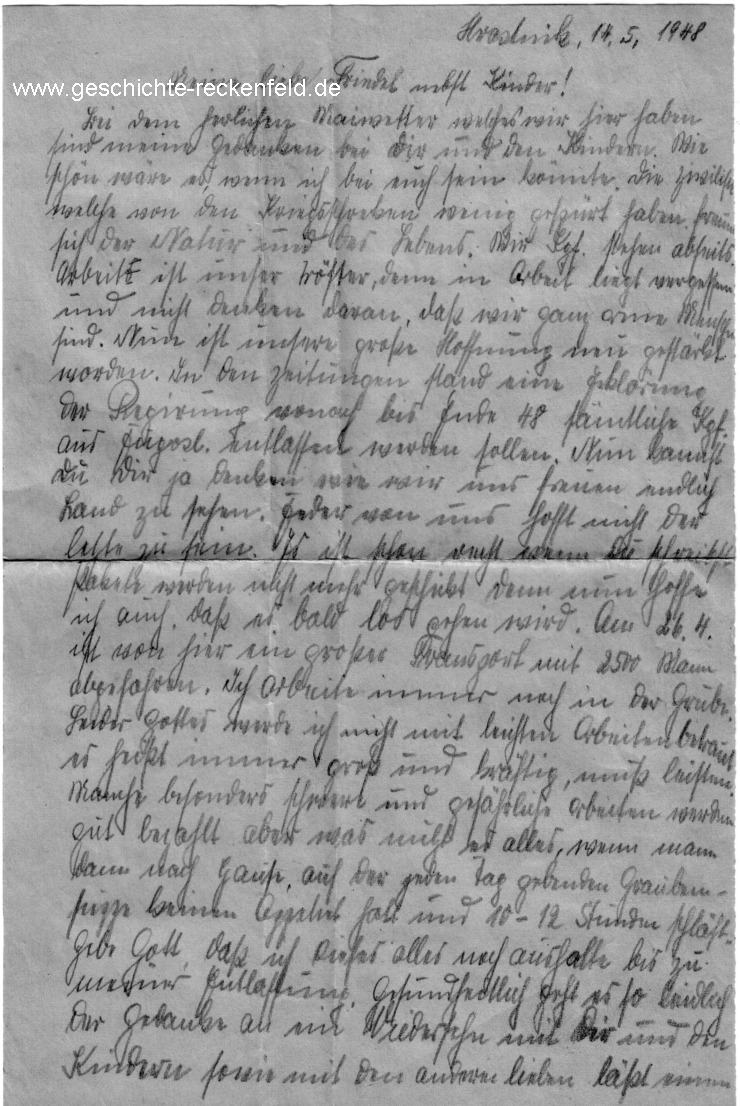 Hrastnik, 14.5.1948
www.geschichte-reckenfeld.de
Meine liebe Friedel nebst Kinder!
Bei dem herlichen Maiwetter welches wir hier haben
sind meine Gedanken bei Dir und den Kindern. Wie
schön wäre es, wenn ich bei euch sein könnte. Die Zivilisten
welche von den Kriegsschrecken wenig gespürt haben, freuen
sich der Natur und des Lebens. Wir Kgf. stehen abseits.
Arbeit ist unser Tröster, denn in Arbeit liegt vergessen
und nicht denken daran, daß wir ganz arme Menschen
sind. Nun ist unsere große Hoffnung neu gestärkt
worden. In den Zeitungen stand eine Erklärung
der Regirung wonach bis Ende 48 sämtliche Kgf.
aus Jugosl. entlassen werden sollen. Nun kannst
Du Dir ja denken wie wir uns freuen endlich
Land zu sehen. Jeder von uns hofft nicht der
letzte zu sein. Es ist schon recht wenn Du schreibst
Pakete werden nicht mehr geschickt denn nun hoffe
ich auch, daß es bald los gehen wird. Am 26.4.
ist von hier ein großer Transport mit 2500 Mann
abgefahren. Ich arbeite immer noch in der Grube.
Leider Gottes werde ich nicht mit leichten Arbeiten betraut
es heißt immer groß und kräftig, muß leisten.
Manche besonders schwere und gefährliche arbeiten werden
gut bezahlt aber was nützt es alles, wenn mann
dann nach Hause, auf der jeden Tag gebenden Grauben-
suppe keinen Appetit hat und 10-12 Stunden schläft.
Gebe Gott, daß ich dieses alles noch aushalte bis zu
meiner Entlassung. Gesundheitlich geht es so leidlich
der Gedanke an ein Wiedersehn mit Dir und den
Kindern sowie mit den anderen lieben läßt einen